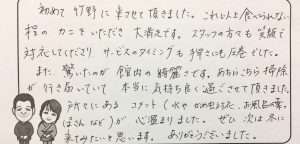 初めて竹野に来させて頂きました。これ以上食べられない
程のカニをいただき大満足です。スタッフの方々も笑顔で
対応してくださり サービスのタイミングも 手際にも圧巻でした。
また、驚いたのが 館内の綺麗さです。あちらこちら掃除
が行き届いていて 本当に気持ち良く過ごさせて頂きました。
所々にある コメント(水や かめむし、お風呂の
さんなど)が 心温まりました。ぜひ 次は 冬に
来てみたいと思います。ありがとうございました。